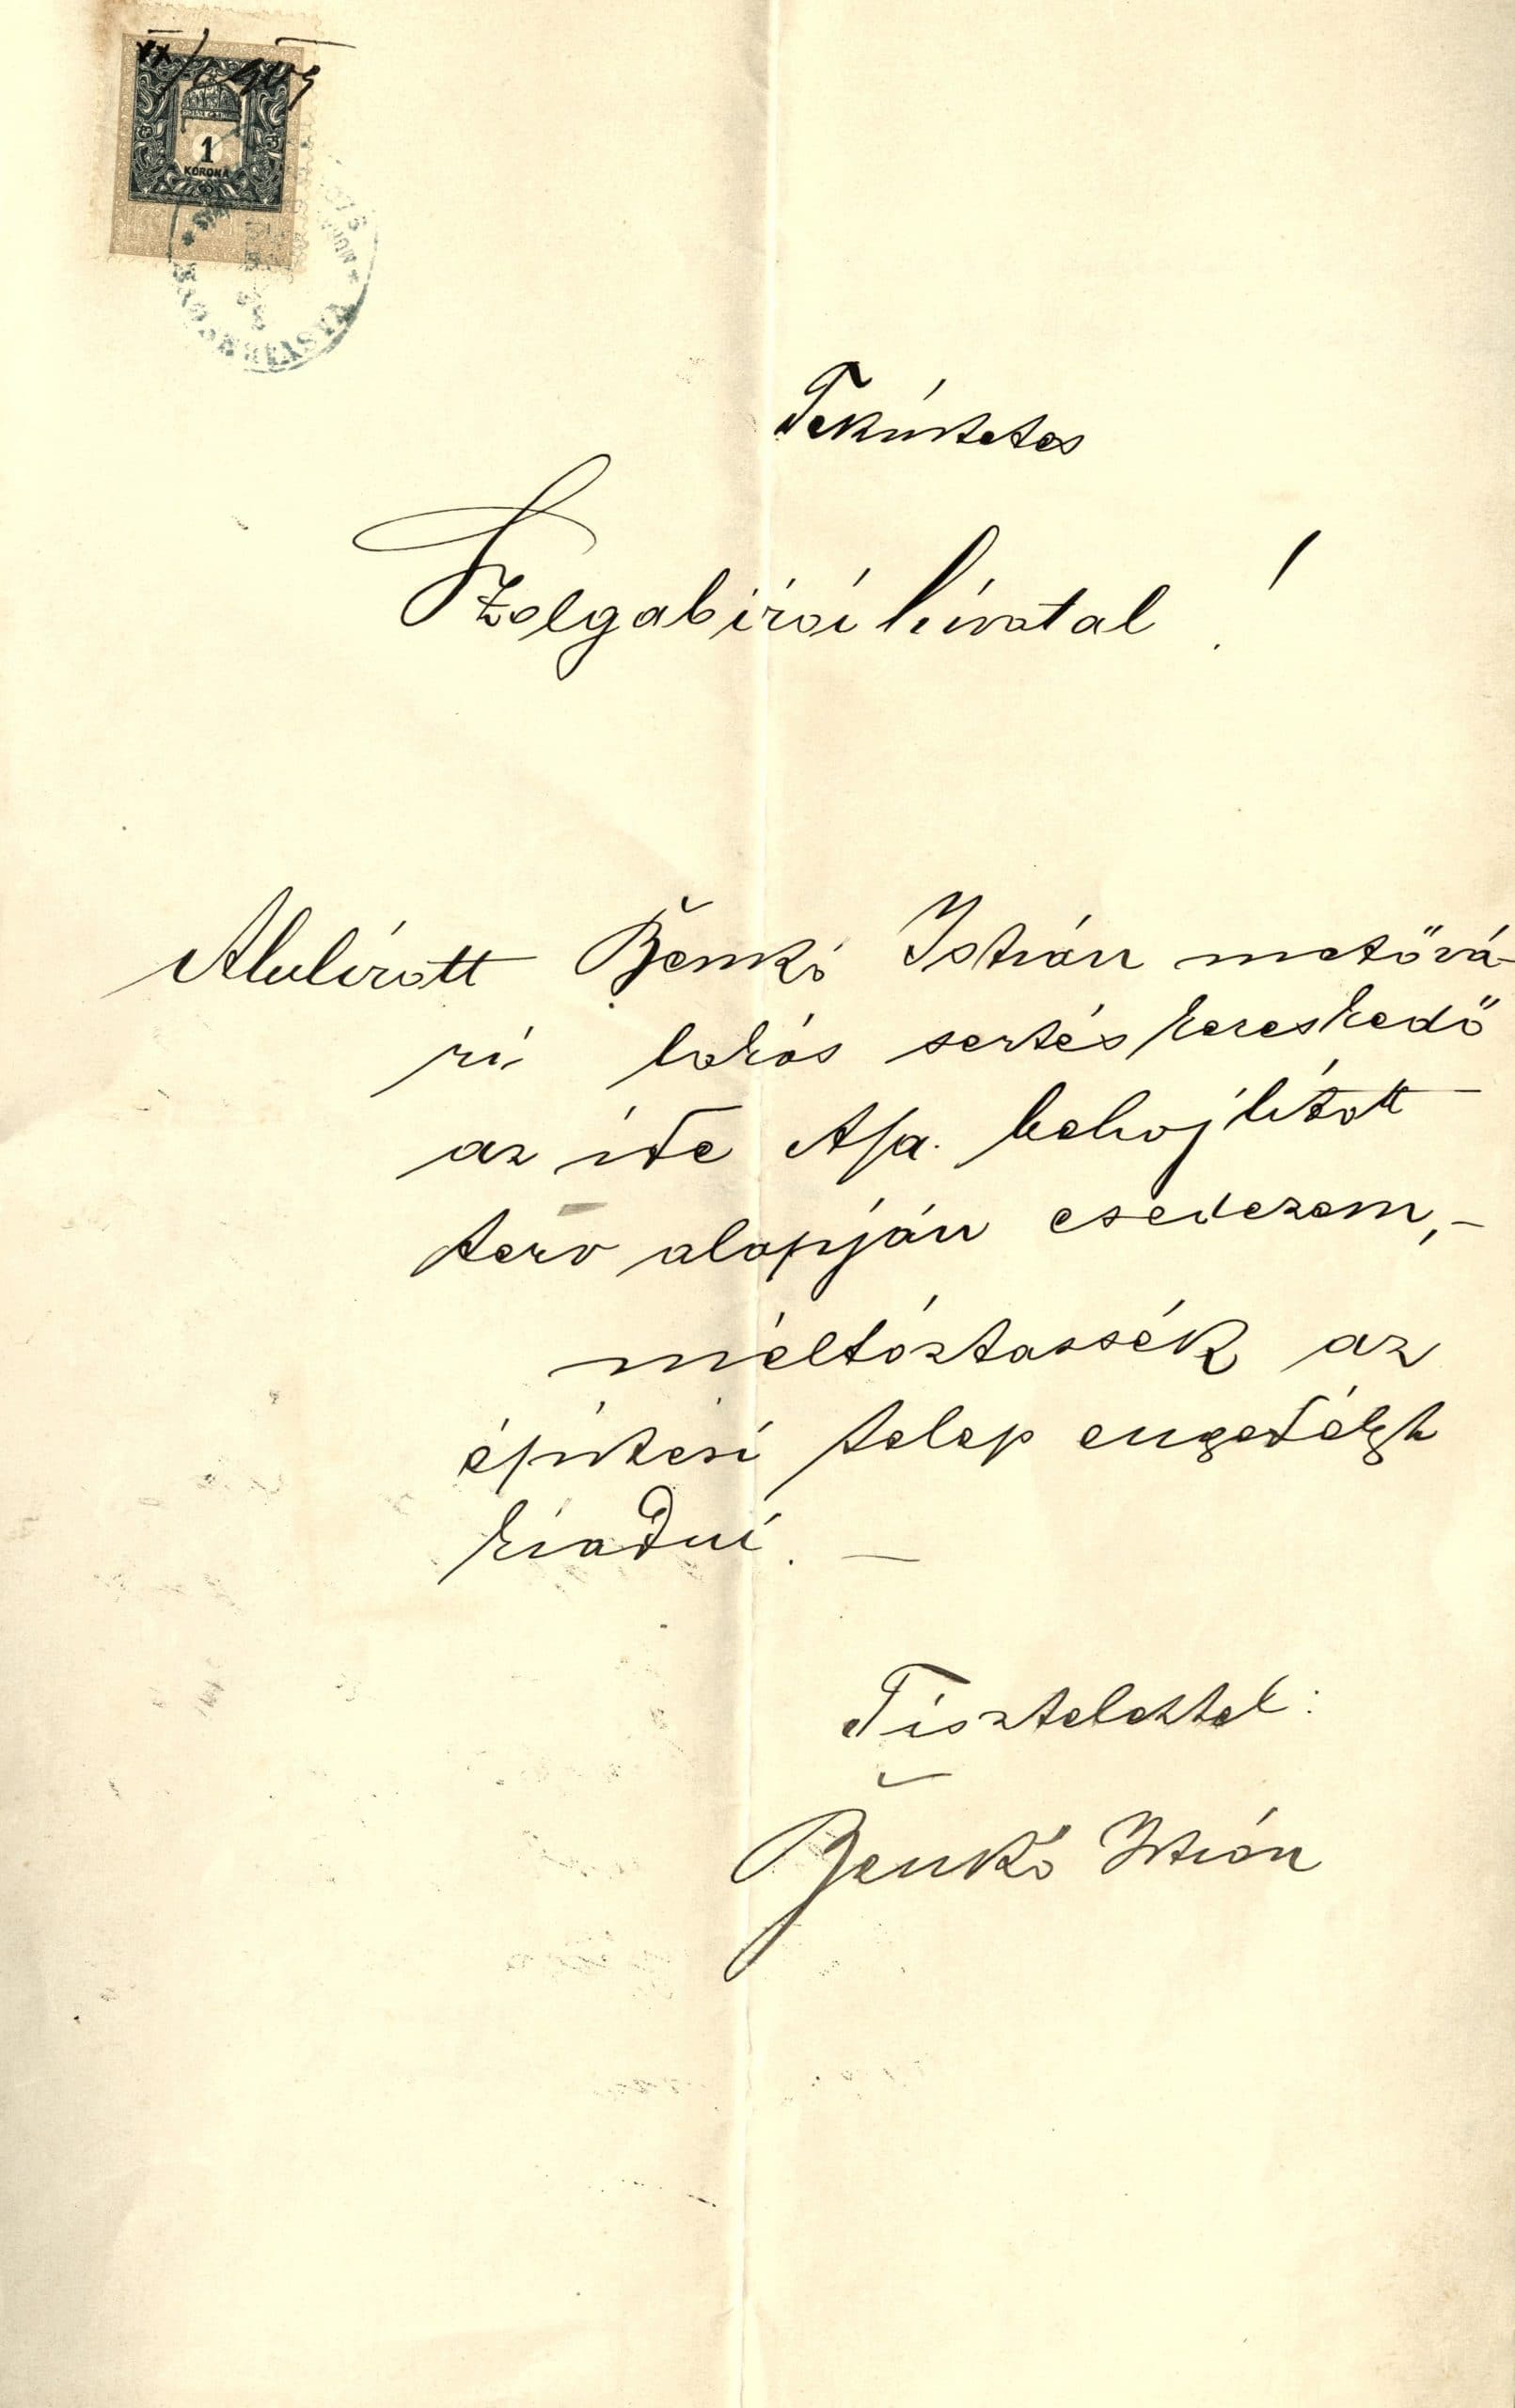 1
KORONA
Tekintetes
Szolgabirói hivatal!
Alulirott Benkó István metővá-
ri lakós sertés kereskedő
az ide A/a. behajlitott
terv alapján esedezem,-
méltóztassék az
épitési telep engedélyt
kiadni. —
Tisztelettel:
Benkó István